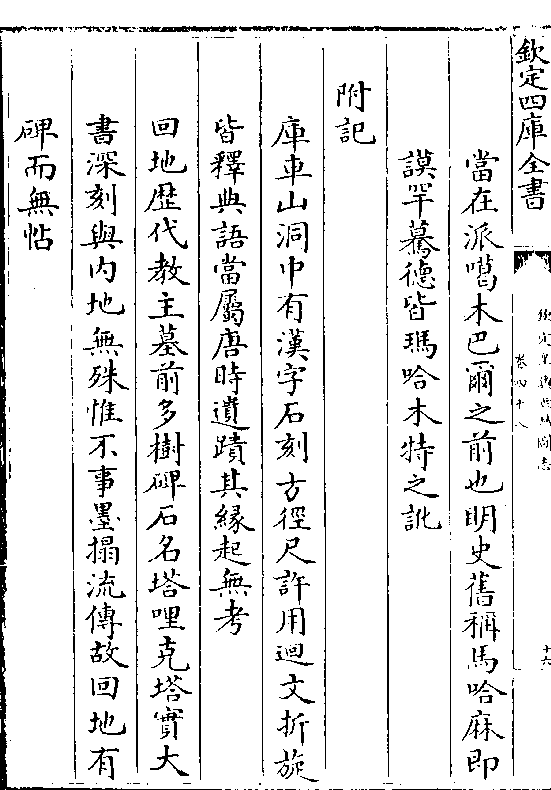 欽定四庫全書
欽定皇輿西域圖志
卷四十八
十六
當在派噶木巴爾之前也明史舊稱馬哈麻即
謨罕驀德皆瑪哈木特之訛
附記
庫車山洞中有漢字石刻方徑尺許用迴文折旋
皆釋典語當屬唐時遺蹟其緣起無考
回地歴代教主墓前多樹碑石名塔哩克塔實大
書深刻與内地無殊惟不事墨搨流傳故回地有
碑而無帖